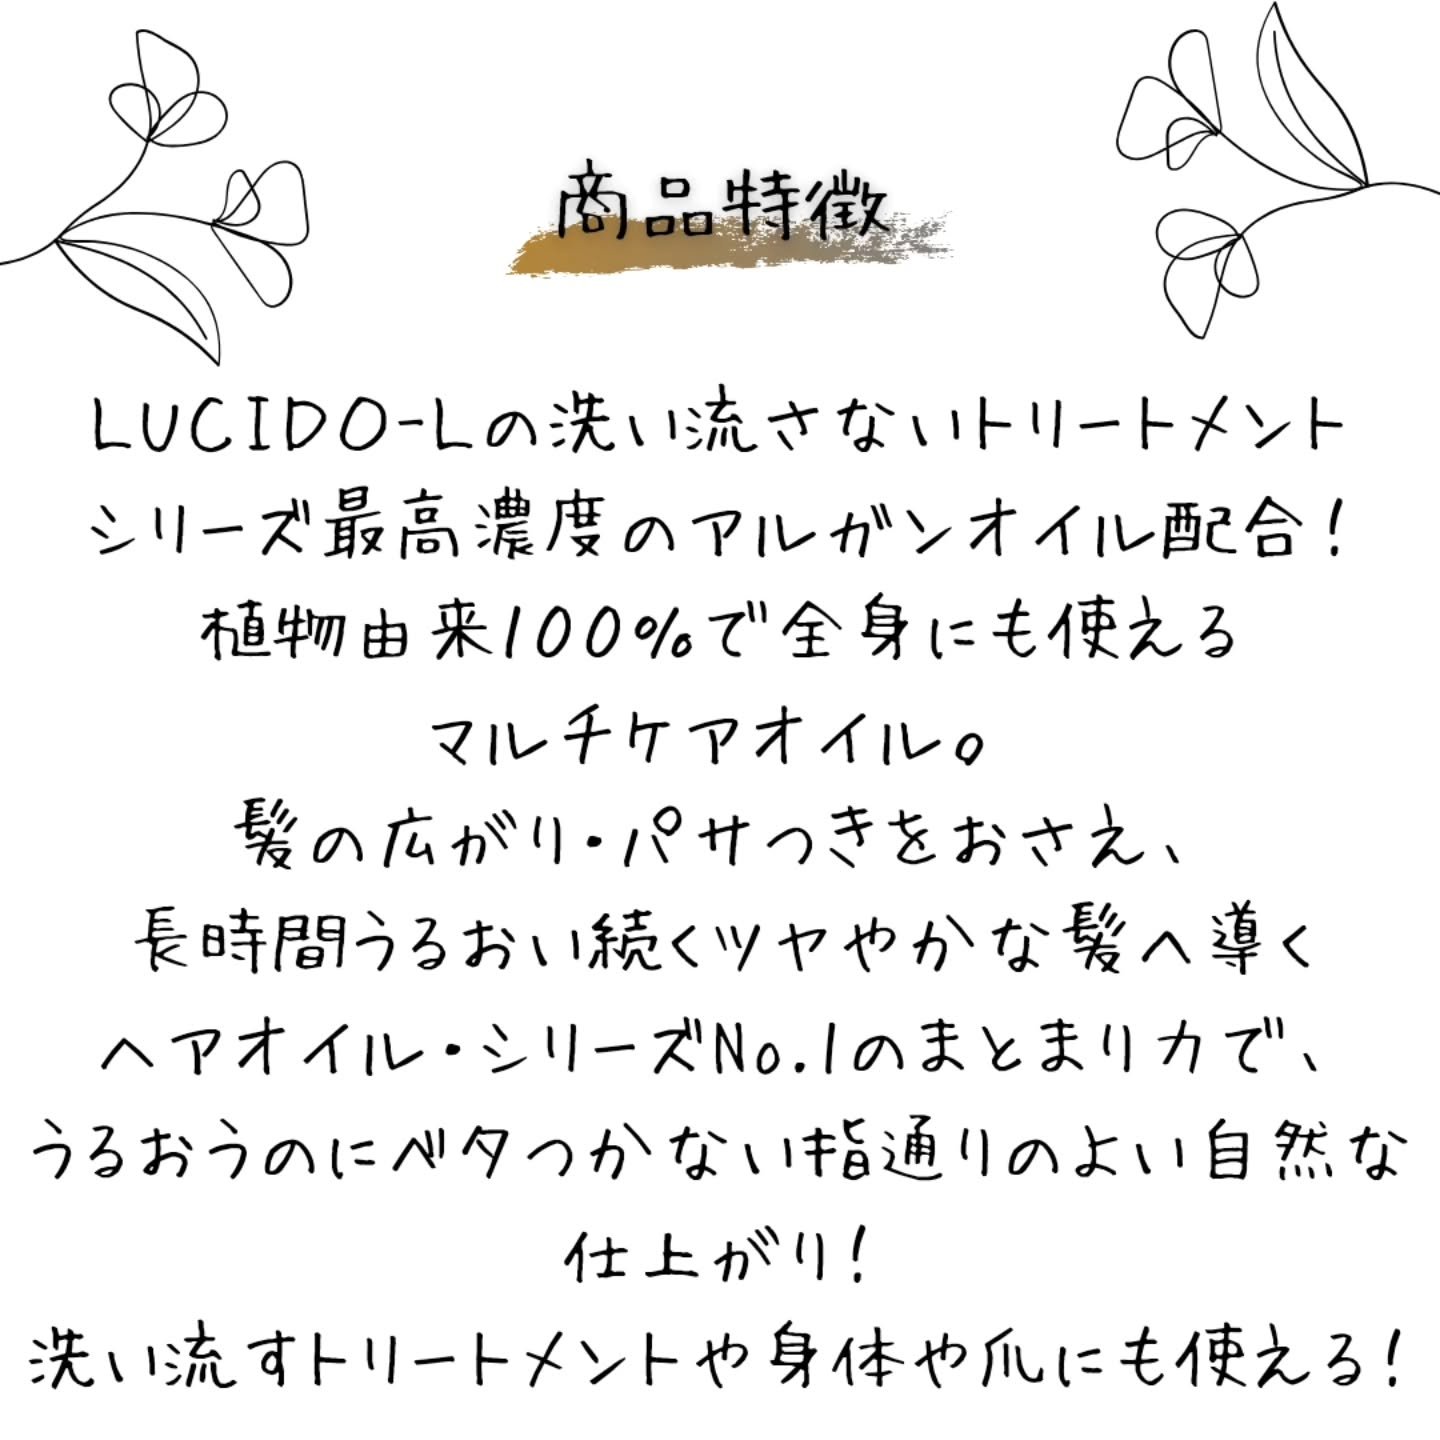 商品特徴
LUCIDO-Lの洗い流さないトリートメント
シリーズ最高濃度のアルガンオイル配合！
植物由来100%で全身にも使える
マルチケアオイル。
髪の広がり・パサつきをおさえ、
長時間うるおい続くツヤやかな髪へ導く
ヘアオイル・シリーズNo.1のまとまり力で、
うるおうのにベタつかない指通りのよい自然な
仕上がり！
洗い流すトリートメントや身体や爪にも使える！